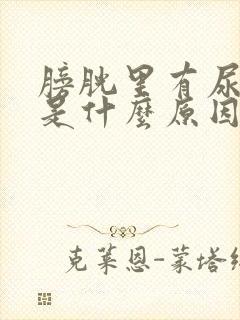 膀胱里有尿
是什麼原因
克莱恩-蒙塔